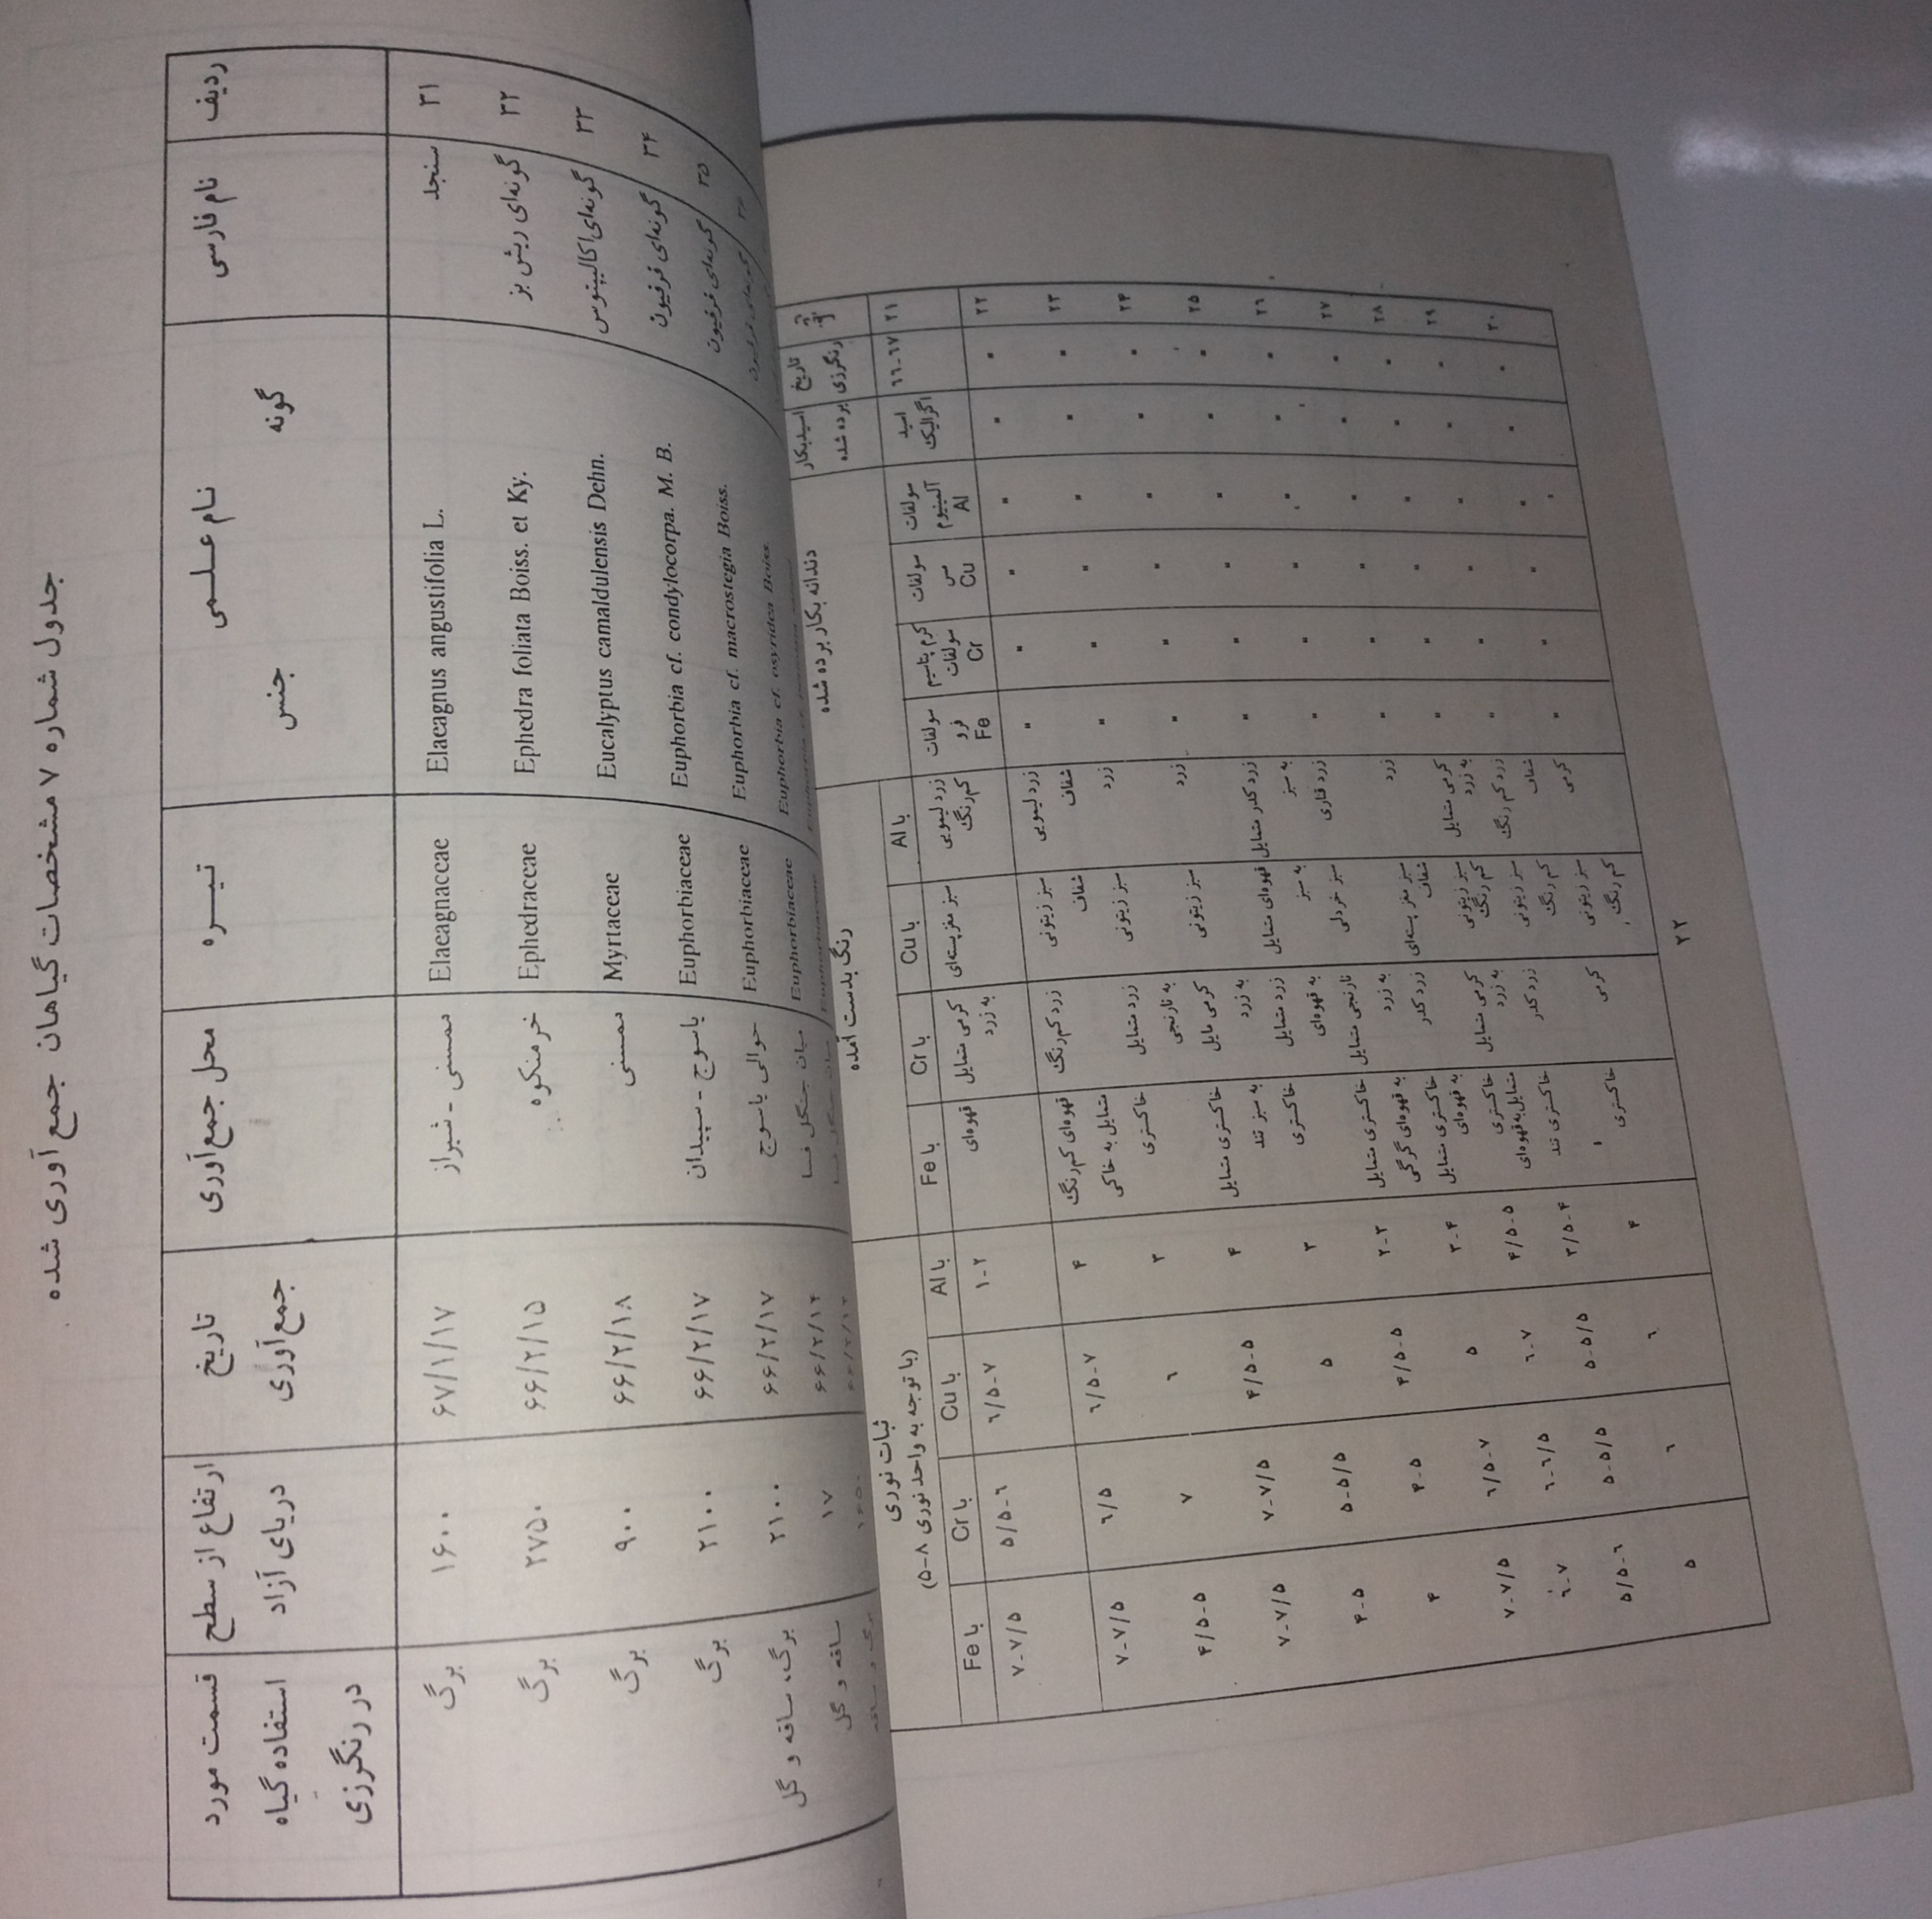 جدول شماره ۷ مشخصات گیاهان جمع آوری شده
ردیف نام فارسی نام علمی تیره محل جمع‌آوری تاریخ ارتفاع از سطح قسمت مورد
گونه جنس جمع‌آوری دریای آزاد استفاده گیاه
در رنگرزی
۳۱ سنجد Elaeagnus angustifolia L. Elaeagnaceae ممسنی - شیراز ۶۷/۱/۱۷ ۱۶۰۰ برگ
۳۲ گونه‌ای ریش بز Ephedra foliata Boiss. et Ky. Ephedraceae خرمنکوه ۶۶/۲/۱۵ ۲۷۵۰ برگ
۳۳ گونه‌ای اکالیپتوس Eucalyptus camaldulensis Dehn. Myrtaceae ممسنی ۶۶/۲/۱۸ ۹۰۰ برگ
۳۴ گونه‌ای فرفیون Euphorbia cf. condylocorpa. M. B. Euphorbiaceae یاسوج - سپیدان ۶۶/۲/۱۷ ۲۱۰۰ برگ
۳۵ گونه‌ای فرفیون Euphorbia cf. macrostegia Boiss. Euphorbiaceae حوالی یاسوج ۶۶/۲/۱۷ ۲۱۰۰ برگ، ساقه و گل
۳۶ گونه‌ای فرفیون Euphorbia cf. osyridea Boiss. Euphorbiaceae میان جنگل فسا ۶۶/۲/۱۴ ۱۷ ساقه و گل
تاریخ اسید بکار دندانه بکار برده شده رنگ بدست آمده ثبات نوری
رنگرزی برده شده (با توجه به واحد نوری ۸-۵)
با Al با Cu با Cr با Fe با Al با Cu با Cr با Fe
۲۱ ۶۶-۶۷ اسید سولفات سولفات کرم پتاسیم سولفات زرد لیمویی سبز مغز پسته‌ای کرمی متمایل قهوه‌ای ۱-۲ ۶/۵-۷ ۵/۵-۶ ۷-۷/۵
اگزالیک آلمینیوم مس سولفات فرو کم‌رنگ به زرد
Al Cu Cr Fe
۲۲ " " " " " " زرد لیمویی سبز زیتونی زرد کم‌رنگ قهوه‌ای کم‌رنگ ۴ ۶/۵-۷ ۶/۵ ۷-۷/۵
شفاف شفاف متمایل به خاکی
۲۳ " " " " " " زرد سبز زیتونی زرد متمایل خاکستری ۳ ۶ ۷ ۴/۵-۵
به نارنجی
۲۴ " " " " " " زرد سبز زیتونی کرمی مایل خاکستری متمایل ۴ ۴/۵-۵ ۷-۷/۵ ۷-۷/۵
به زرد به سبز تند
۲۵ " " " " " " زرد کدر متمایل قهوه‌ای متمایل زرد متمایل خاکستری ۳ ۵ ۵-۵/۵ ۴-۵
به سبز به سبز به قهوه‌ای
۲۶ " " " " " " زرد قناری سبز خردلی نارنجی متمایل خاکستری متمایل ۲-۳ ۴/۵-۵ ۴-۵ ۴
به زرد به قهوه‌ای گرگی
۲۷ " " " " " " زرد سبز مغز پسته‌ای زرد کدر خاکستری متمایل ۳-۴ ۵ ۶/۵-۷ ۷-۷/۵
شفاف به قهوه‌ای
۲۸ " " " " " " کرمی متمایل سبز زیتونی کرمی متمایل خاکستری ۴/۵-۵ ۶-۷ ۶-۶/۵ ۶-۷
به زرد کم رنگ به زرد متمایل به قهوه‌ای
۲۹ " " " " " " زرد کم رنگ سبز زیتونی زرد کدر خاکستری تند ۳/۵-۴ ۵-۵/۵ ۵-۵/۵ ۵/۵-۶
شفاف کم رنگ
۳۰ " " " " " " کرمی سبز زیتونی کرمی خاکستری ۴ ۶ ۶ ۵
کم رنگ
۲۲